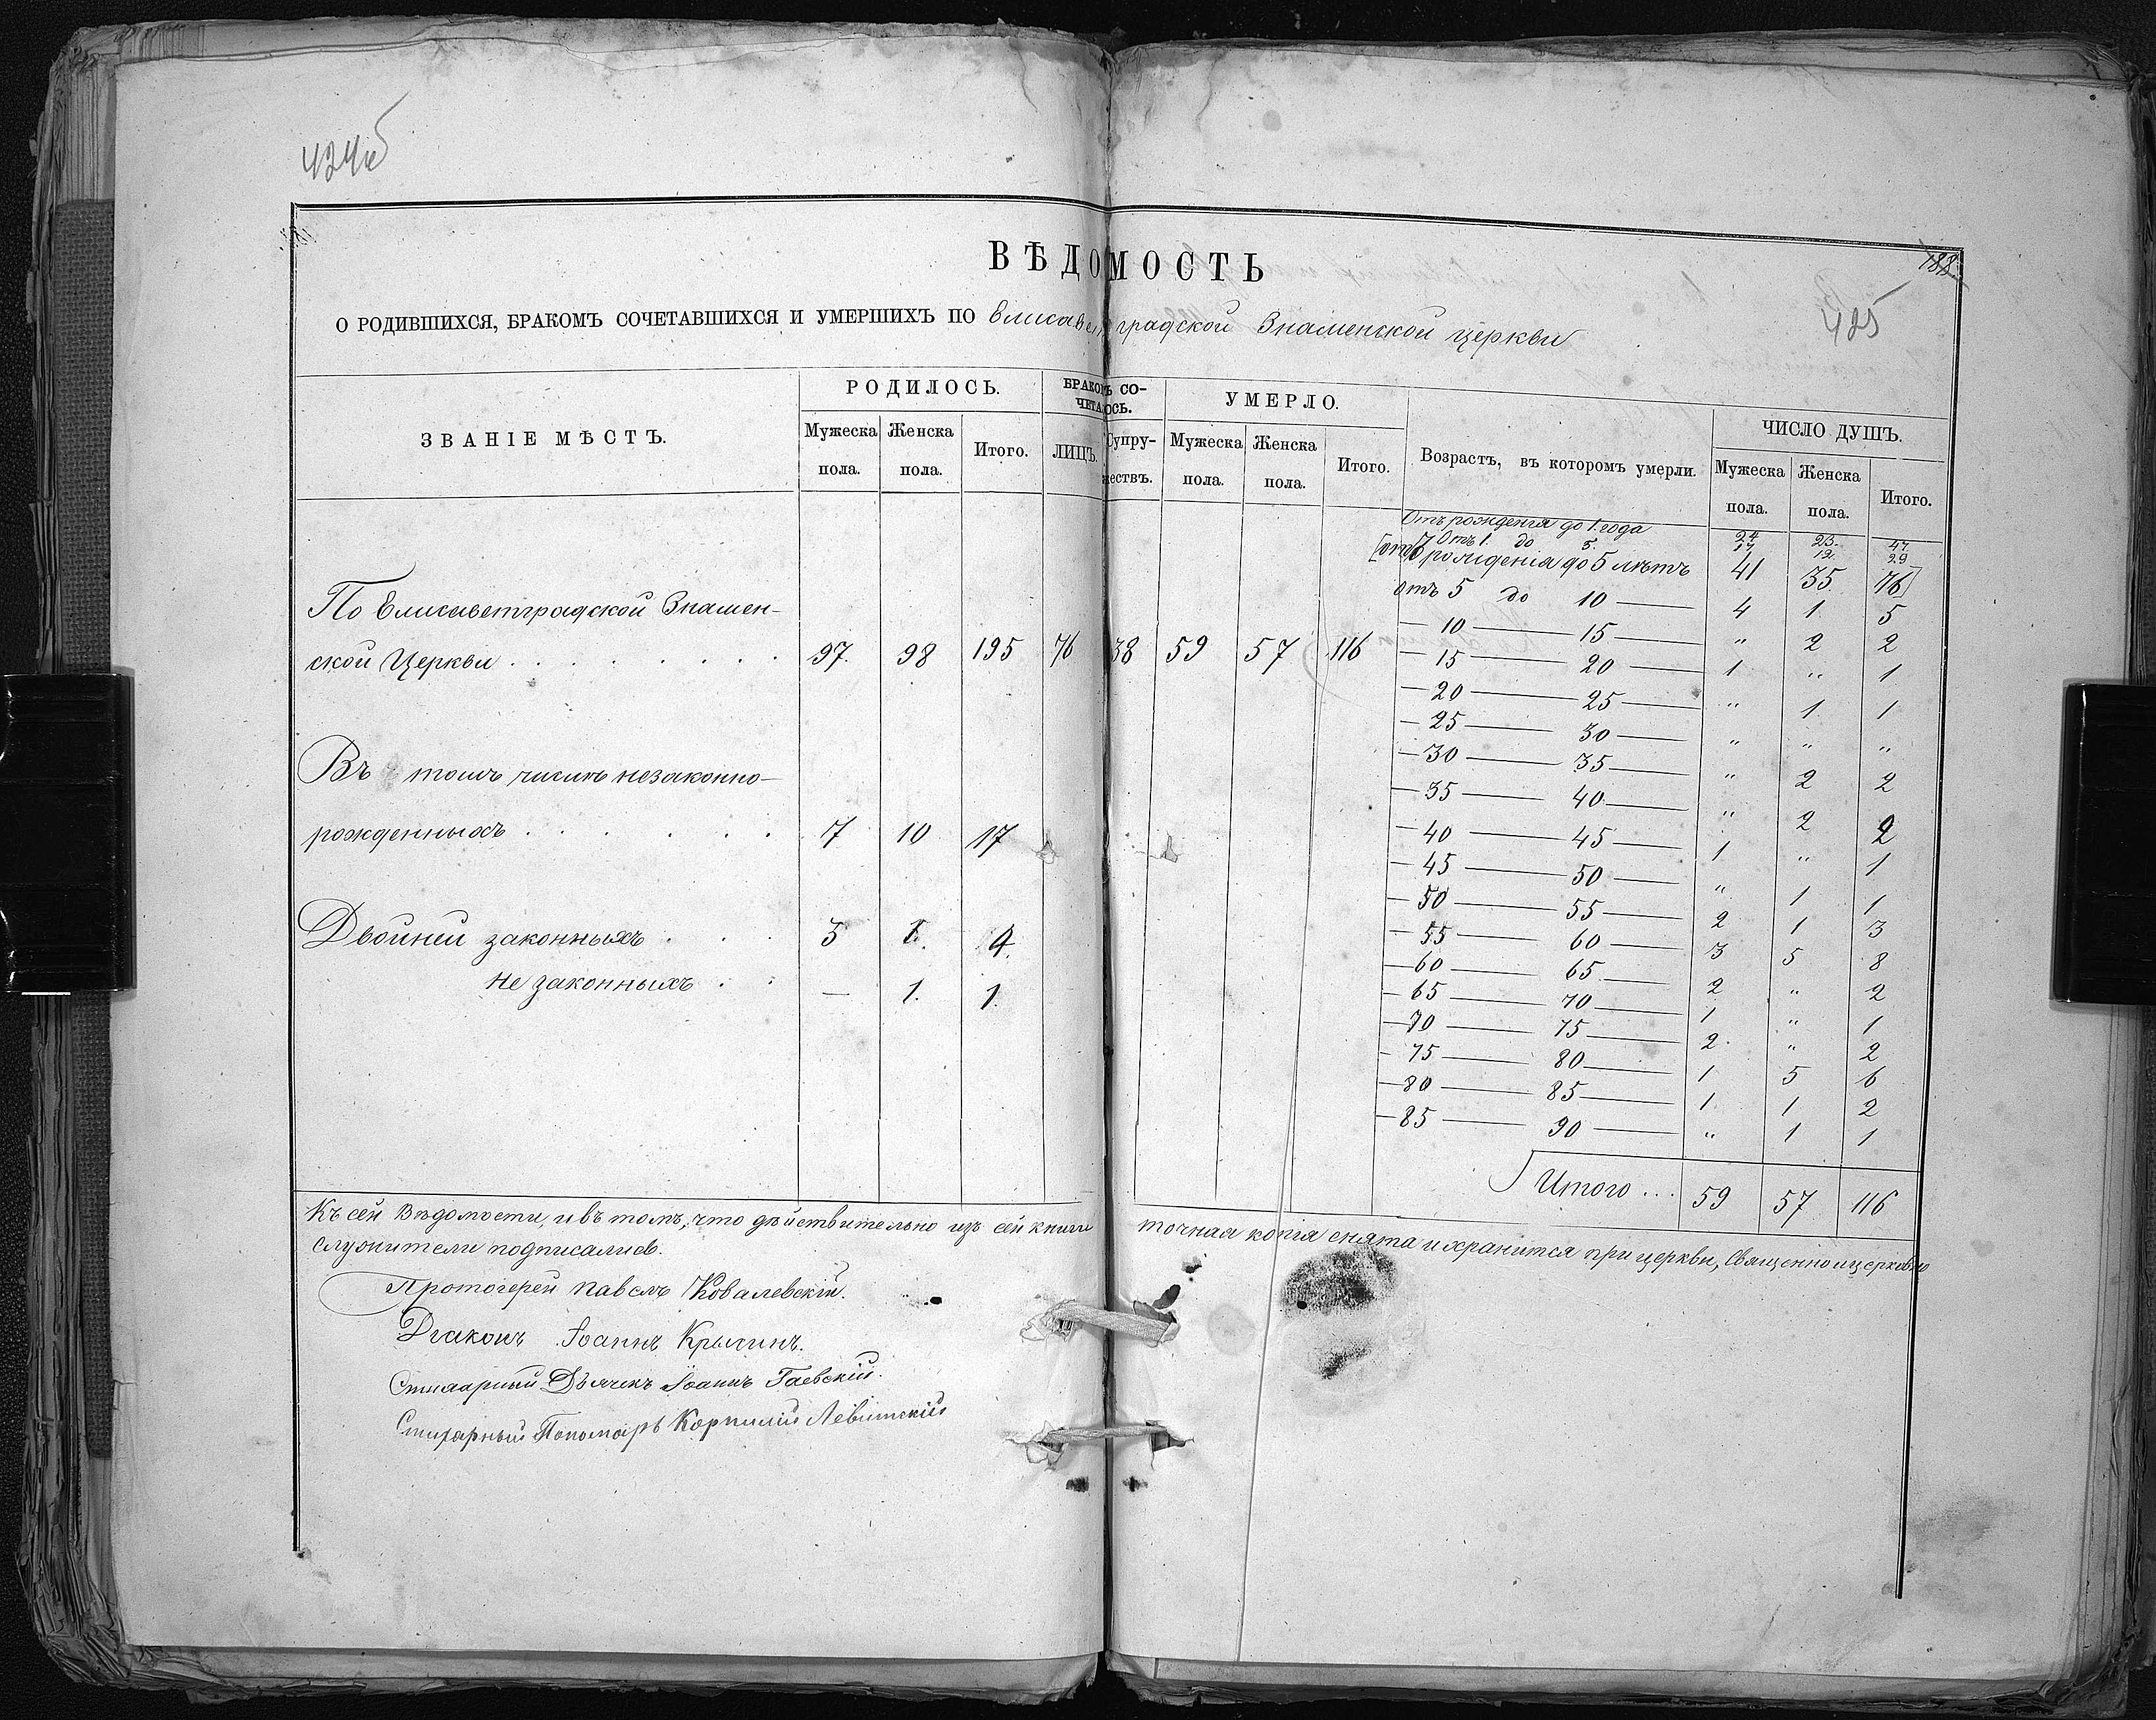 424об
ВѢДОМОСТЬ
188
О РОДИВШИХСЯ, БРАКОМЪ СОЧЕТАВШИХСЯ И УМЕРШИХЪ ПО Елисаветградской Знаменской церкви
425
ЗВАНІЕ МѢСТЪ.
РОДИЛОСЬ.
Мужеска пола.
Женска пола.
Итого.
БРАКОМЪ СО-
ЧЕТАЛОСЬ.
ЛИЦЪ.
Супру-
жествъ.
УМЕРЛО.
Мужеска пола.
Женска пола.
Итого.
Возрастъ, въ которомъ умерли.
ЧИСЛО ДУШЪ.
Мужеска пола.
Женска пола.
Итого.
По Елисаветградской Знамен-
ской Церкви . . . . . . . 97. 98 195 76 38 59 57 116
Въ томъ числѣ незаконно-
рожденныхъ . . . . . . 7 10 17
Двойней законныхъ . . . 3 1. 4.
не законныхъ . . — 1. 1.
Отъ рожденія до 1. года 24 23. 47
Отъ 1. до 5. 17 12 29
[отъ рожденія до 5 лѣтъ 41 35. 76]
отъ 5 до 10 — 4 1. 5
— 10 — 15 — " 2 2
— 15 — 20 — 1 " 1
— 20 — 25 — " 1. 1
— 25 — 30 — " " "
— 30 — 35 — " 2 2
— 35 — 40 — " 2 2
— 40 — 45 — 1 " 1
— 45 — 50 — " 1 1
— 50 — 55 — 2 1 3
— 55 — 60 — 3 5 8
— 60 — 65 — 2 " 2
— 65 — 70 — 1 " 1
— 70 — 75 — 2. " 2
— 75 — 80 — 1 5 6
— 80 — 85 — 1. 1 2
— 85 — 90 — " 1 1
Итого ... 59 57 116
Къ сей Вѣдомости, и въ томъ, что дѣйствительно изъ сей книги точная копія снята и хранится при церкви, Священно и церковно
служители подписались.
Протоіерей Павелъ Ковалевскій.
Діаконъ Іоаннъ Крыгинъ.
Стихарный Дьячекъ Іоаннъ Гаевскій.
Стихарный Пономарь Корнилій Левитскій